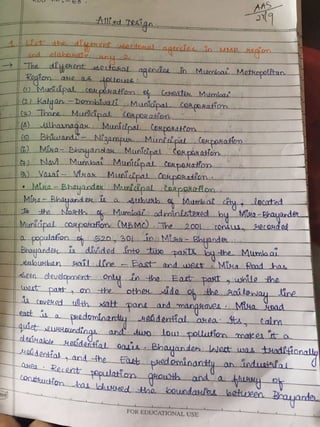 ROLL NO:
AAS
Jul9
Allied Design
1. List the different sectoral agencies in MMR region
and elaborate any 2.
→ The different sectoral agencies in Mumbai Metropolitan
Region are as follows:
(1) Municipal corporation of Greater Mumbai
(2) Kalyan-Dombivali Municipal corporation
(3) Thane Municipal Corporation
(4) Ulhasnagar Municipal Corporation
(5) Bhiwandi-Nizampur Municipal Corporation
(6) Mira-Bhayandar Municipal Corporation
(7) Navi Mumbai Municipal Corporation
(8) Vasai-Virar Municipal Corporation.
• Mira-Bhayander Municipal Corporation
Mira-Bhayander is a suburb of Mumbai city, located
to the North of Mumbai administered by Mira-Bhayander
Municipal corporation (MBMC). The 2001 census, recorded
a population of 520,301 in Mira-Bhyander.
Bhayander is divided into two parts by the Mumbai
suburban rail line - East and west. Mira Road has
seen development only in the East part, while the
west part, on the other side of the railway line
is covered with salt pans and mangroves. Mira road
east is a predominantly residential area. Its, calm
quiet surroundings and low pollution makes it a
desirable residential oasis. Bhayander West was traditionally
residential, and the East predominantly an industrial
area. Recent population growth and a flurry of
construction has blurred the boundaries between Bhayander
FOR EDUCATIONAL USE